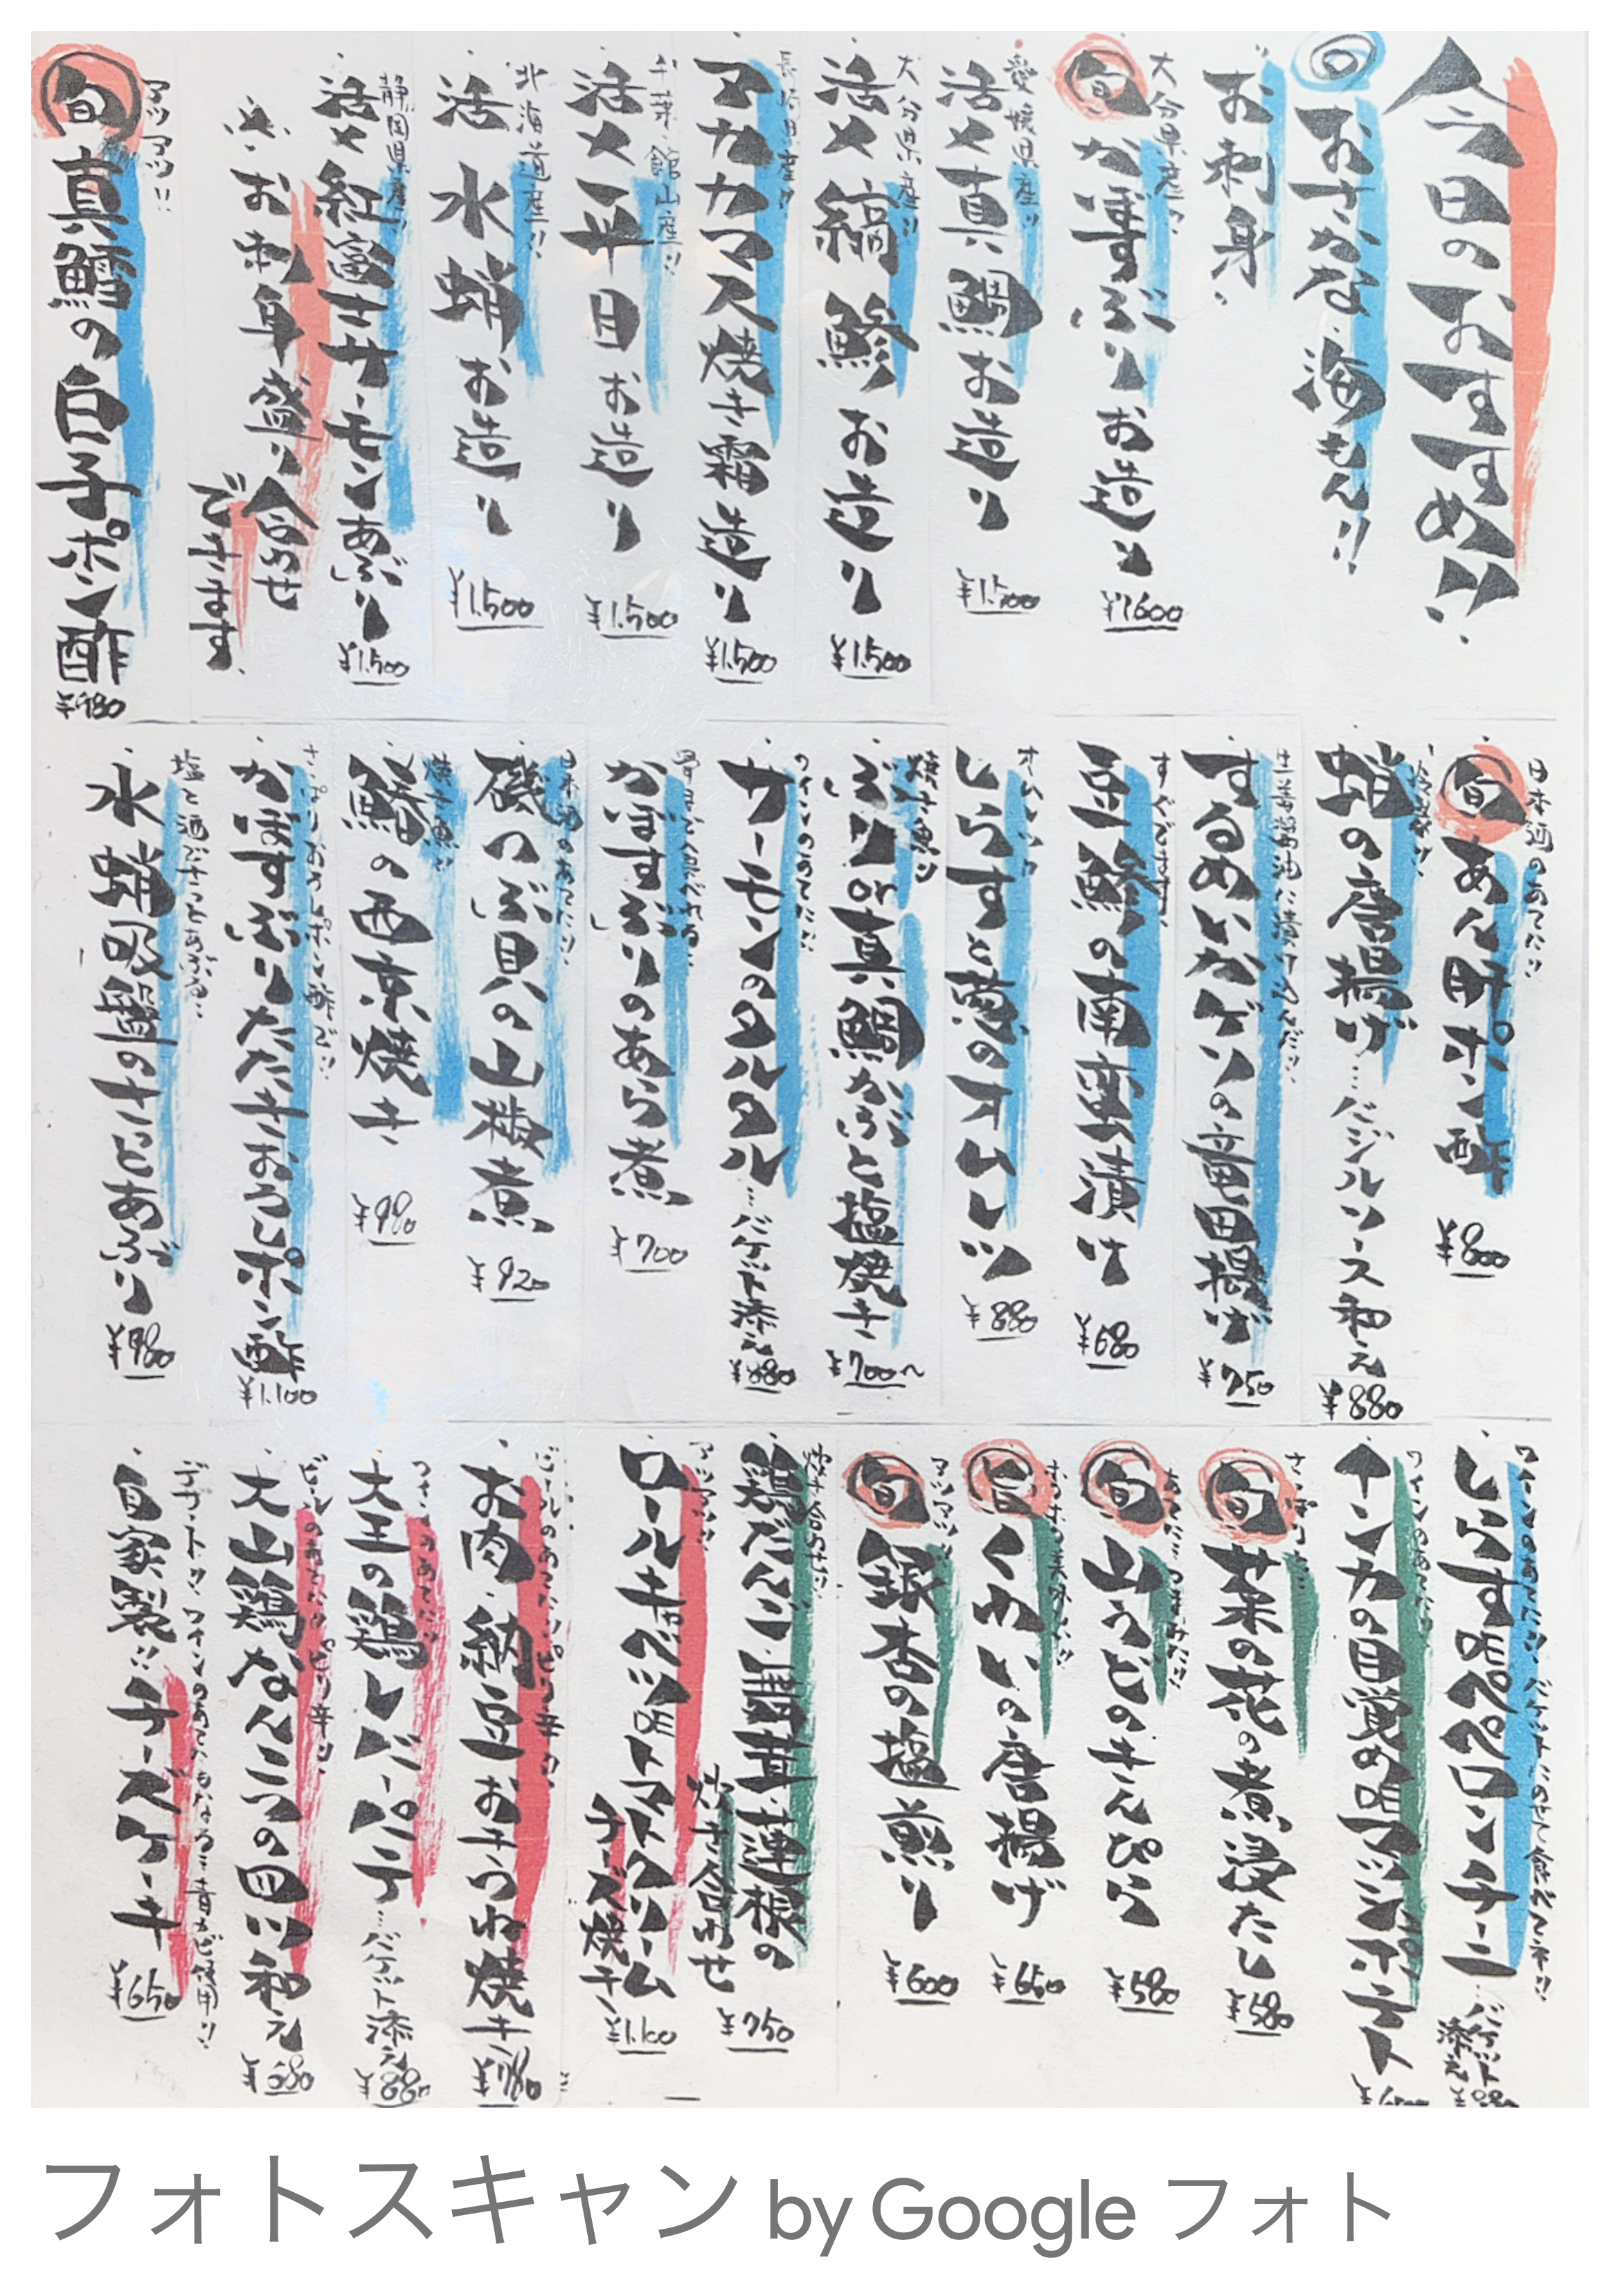 今日のおすすめ!!
回 おさかな・海もん!!
お刺身
大分県産!!
旬 かぼすぶりお造り
¥1600
愛媛県産!!
活〆真鯛お造り
¥1.500
大分県産!!
活〆縞鯵お造り
¥1.500
長崎県産!!
アカカマス焼き霜造り
¥1.500
千葉 館山産!!
活〆平目お造り
¥1.500
北海道産!!
活 水蛸お造り
¥1.500
静岡県産!!
活〆紅富士サーモンあぶり
¥1.500
お刺身盛り合わせ
できます
アツアツ!!
旬 真鱈の白子ポン酢
¥980
日本酒のあてに!!
旬 あん肝ポン酢
¥800
蛸の唐揚げ…バジルソース和え
¥880
生姜醤油に漬け込んだ!!
するめいかゲソの竜田揚げ
¥750
すぐでます!!
豆鯵の南蛮漬け
¥680
しらすと葱のオムレツ
¥880
焼き魚!!
ぶりor真鯛かぶと塩焼き
¥700~
ワインのあてに!!
サーモンのタルタル…バゲット添え
¥880
かぼすぶりのあら煮
¥700
日本酒のあてに!!
磯つぶ貝の山椒煮
¥920
焼き魚!!
鰆の西京焼き
¥980
さっぱりおろしポン酢で!!
かぼすぶりたたきおろしポン酢
¥1.100
塩と酒でさっとあぶる!!
水蛸吸盤のさっとあぶり
¥980
ワインのあてに!! バゲットにのせて食べてネ!!
しらすDEペペロンチーニ…バゲット添え
ワインのあてに!!
インカの目覚めDEマッシュポテト
さっぱりと…
旬 菜の花の煮浸たし
¥580
あてに…つまみに!!
旬 山うどのきんぴら
¥580
旨 くわいの唐揚げ
¥650
アツアツ!!
旬 銀杏の塩煎り
¥600
炊き合わせ!!
鶏だんご・舞茸・蓮根の
炊き合わせ
¥750
アツアツ!!
ロールキャベツDEトマトクリーム
チーズ焼き
¥1.100
ビールのあてに!!ピリ辛!!
お肉・納豆おきつね焼き
¥780
ワインのあてに!!
大王の鶏レバーパテ…バゲット添え
¥880
ビールのあてに!!ピリ辛!!
大山鶏なんこつの田川和え
¥680
デザートに!! ワインのあてにもなる…青カビ使用!!
自家製!!チーズケーキ
¥650
フォトスキャン by Google フォト